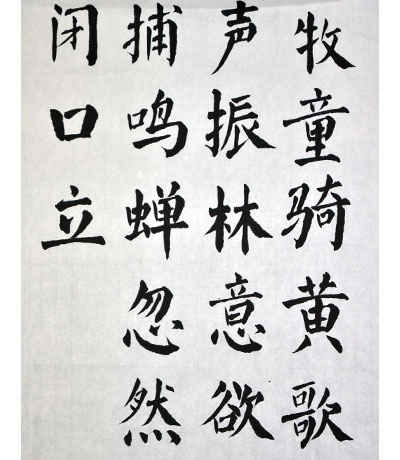 牧童骑黄歌
声振林意欲
捕鸣蝉忽然
闭口立